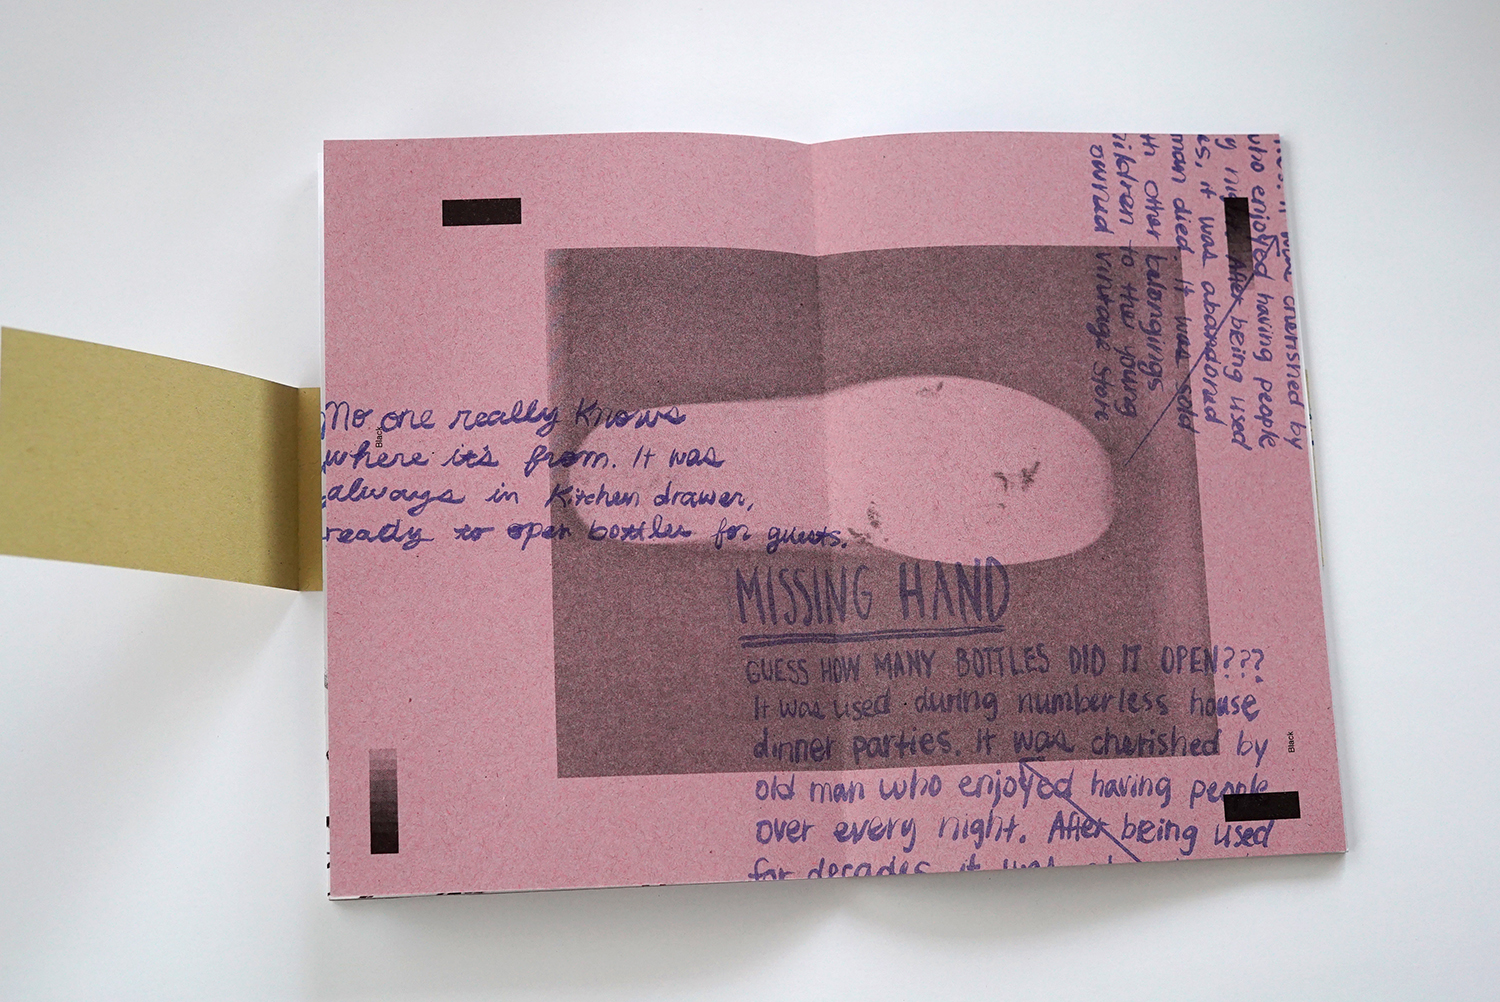 No one really knows
where it's from. It was
always in kitchen drawer,
ready to open bottles for guests.
Black
MISSING HAND
GUESS HOW MANY BOTTLES DID IT OPEN???
It was used during numberless house
dinner parties. It was cherished by
old man who enjoyed having people
over every night. After being used
for decades, it was
Black
cherished by
who enjoyed having people
After being used
es, it was abandoned
man died. It was sold
th other belongings
children to the young
owned vintage store